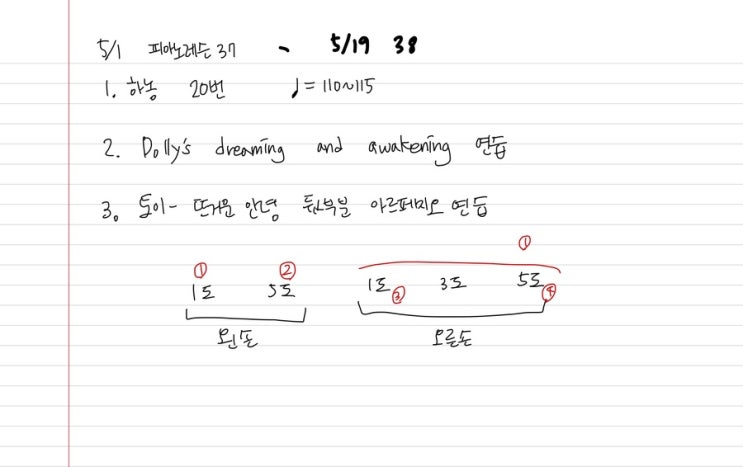 5/1 피아노레슨 37 ~ 5/19 38
1. 하농 20번 ♩= 110~115
2. Dolly's dreaming and awakening 연습
3. 토이- 뜨거운 안녕 뒷부분 아르페지오 연습
①
① ② 
1도 5도 1도 ③ 3도 5도 ④
왼손 오른손